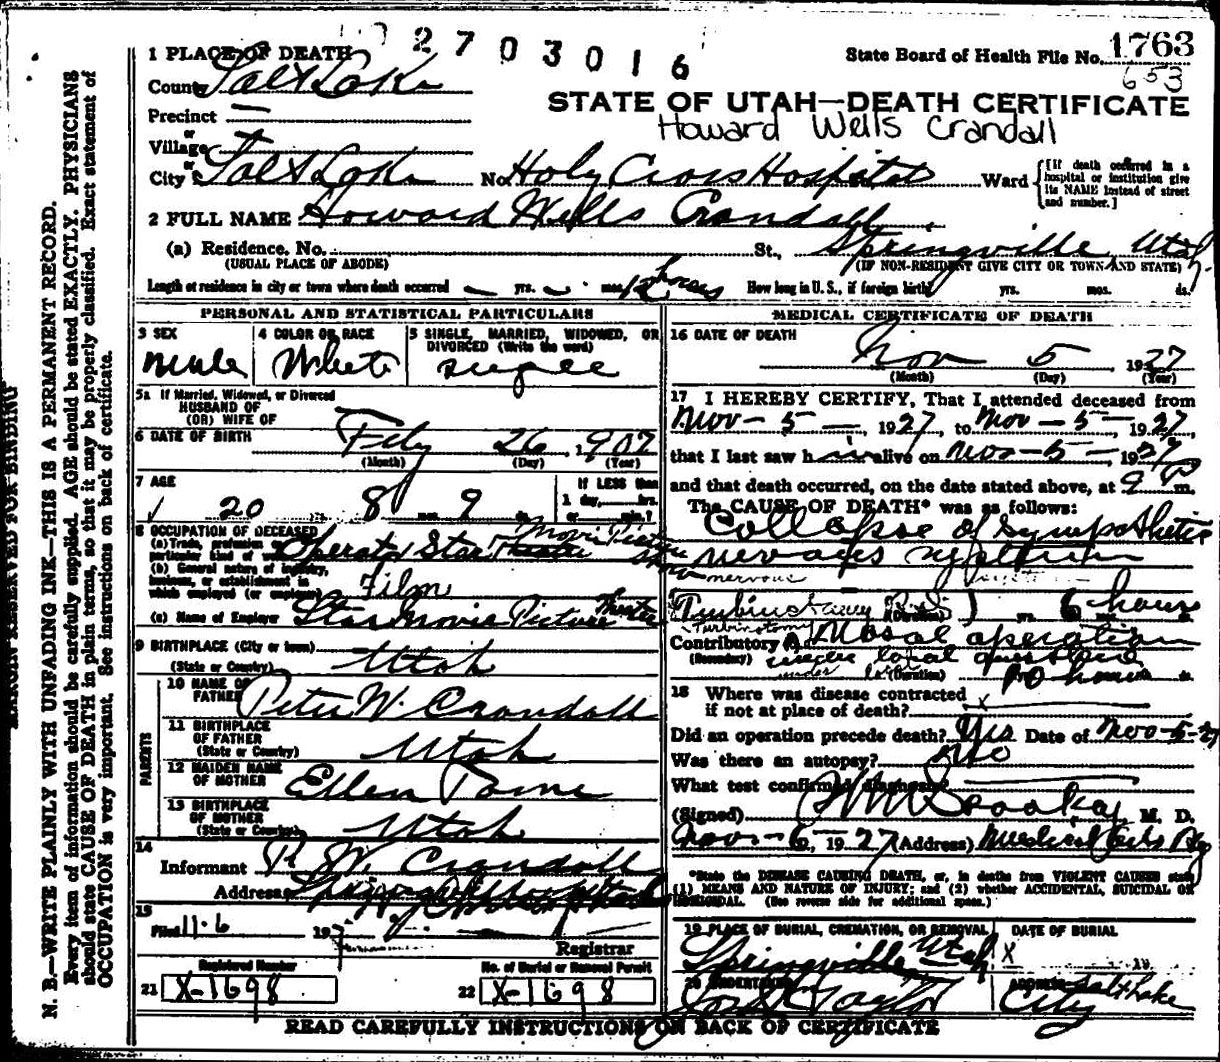 2703016
State Board of Health File No. 1763
653
1 PLACE OF DEATH
County Salt Lake
STATE OF UTAH—DEATH CERTIFICATE
Precinct —
Howard Wells Crandall
or
Village
or
City Salt Lake No. Holy Cross Hospital Ward
[If death occurred in a hospital or institution give its NAME instead of street and number.]
2 FULL NAME Howard Wells Crandall
(a) Residence. No. St., Springville, Utah
(USUAL PLACE OF ABODE) (IF NON-RESIDENT GIVE CITY OR TOWN AND STATE)
Length of residence in city or town where death occurred — yrs. — mos. 12 hours How long in U.S., if foreign birth? yrs. mos. ds.
PERSONAL AND STATISTICAL PARTICULARS
3 SEX
Male
4 COLOR OR RACE
White
5 SINGLE, MARRIED, WIDOWED, OR DIVORCED (Write the word)
single
5a If Married, Widowed, or Divorced
HUSBAND OF
(OR) WIFE OF
6 DATE OF BIRTH Feby 26, 1907
(Month) (Day) (Year)
7 AGE
20 8 mos. 9 ds.
If LESS than
1 day, hrs.
or min.?
8 OCCUPATION OF DECEASED
(a) Trade, profession or particular kind of work Operator Star Theater Movie Picture
(b) General nature of industry, business, or establishment in which employed (or employer) Film
(c) Name of Employer Star Movie Picture Theater
9 BIRTHPLACE (City or town)
(State or Country) Utah
PARENTS
10 NAME OF FATHER Peter W. Crandall
11 BIRTHPLACE OF FATHER
(State or Country) Utah
12 MAIDEN NAME OF MOTHER Ellen
13 BIRTHPLACE OF MOTHER
(State or Country) Utah
14
Informant P. W. Crandall
Address
15
Filed 11-6 192
Registrar
Registered Number
21 X-1698
No. of Burial or Removal Permit
22 X-1698
MEDICAL CERTIFICATE OF DEATH
16 DATE OF DEATH
Nov 5 1927
(Month) (Day) (Year)
17 I HEREBY CERTIFY, That I attended deceased from
Nov-5-, 1927, to Nov-5-, 1927,
that I last saw him alive on Nov-5-, 1927
and that death occurred, on the date stated above, at 9 P m.
The CAUSE OF DEATH* was as follows:
Collapse of Sympathetic
nervous system
nervous
(Duration) yrs. 6 hours
Turbinotomy
Contributory Nasal operation
(Secondary) under local
under (Duration) 10 hours
18 Where was disease contracted
if not at place of death? x
Did an operation precede death? Yes Date of Nov-5-27
Was there an autopsy? No
What test confirmed diagnosis?
(Signed) M. D.
Nov-6, 1927 (Address) Medical Arts Bg
*State the DISEASE CAUSING DEATH, or, in deaths from VIOLENT CAUSES state
(1) MEANS AND NATURE OF INJURY; and (2) whether ACCIDENTAL, SUICIDAL OR
HOMICIDAL. (See reverse side for additional space.)
19 PLACE OF BURIAL, CREMATION, OR REMOVAL
Springville Utah
DATE OF BURIAL
X 19
20 UNDERTAKER
Taylor
ADDRESS Salt Lake
City
READ CAREFULLY INSTRUCTIONS ON BACK OF CERTIFICATE
MARGIN RESERVED FOR BINDING
N. B.—WRITE PLAINLY WITH UNFADING INK—THIS IS A PERMANENT RECORD.
Every item of information should be carefully supplied. AGE should be stated EXACTLY. PHYSICIANS
should state CAUSE OF DEATH in plain terms, so that it may be properly classified. Exact statement of
OCCUPATION is very important. See instructions on back of certificate.